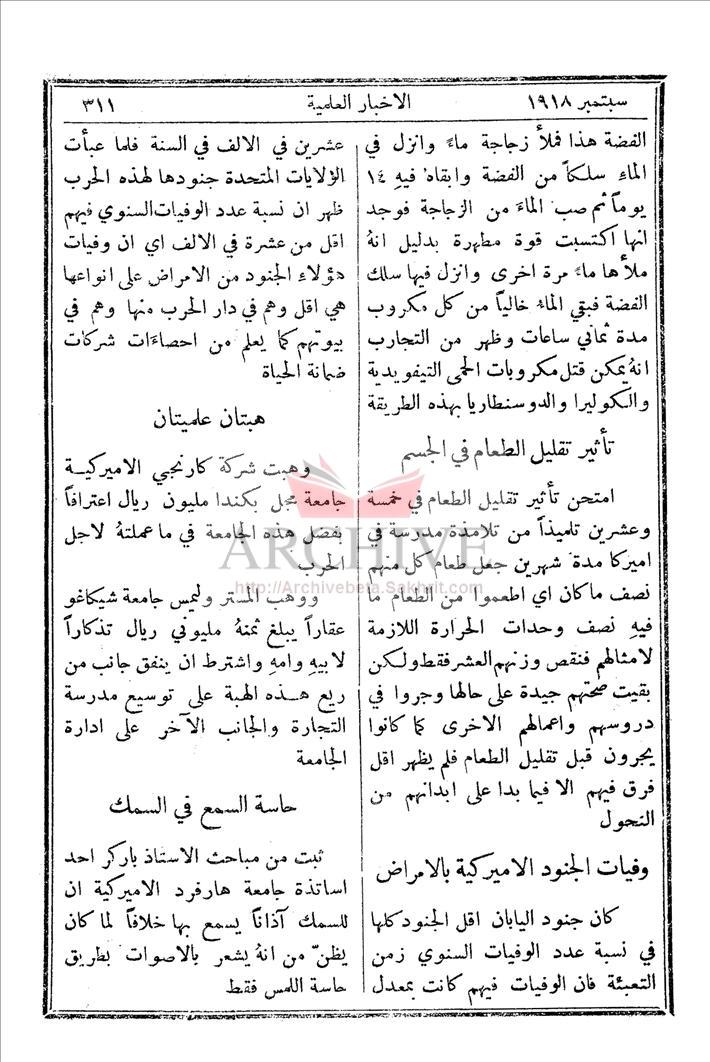 سبتمبر ١٩١٨
الاخبار العلمية
٣١١
الفضة هذا فملأ زجاجة ماءً وانزل في
الماءِ سلكاً من الفضة وابقاهُ فيهِ ١٤
يوماً ثم صب الماءَ من الزجاجة فوجد
انها اكتسبت قوة مطهرة بدليل انهُ
ملأها ماءً مرة اخرى وانزل فيها سلك
الفضة فبقي الماءُ خالياً من كل مكروب
مدة ثماني ساعات وظهر من التجارب
انهُ يمكن قتل مكروبات الحمى التيفويدية
والكوليرا والدوسنطاريا بهذه الطريقة
تأثير تقليل الطعام في الجسم
امتحن تأثير تقليل الطعام في خمسة
وعشرين تلميذاً من تلامذة مدرسة في
اميركا مدة شهرين جعل طعام كل منهم
نصف ما كان اي اطعموا من الطعام ما
فيهِ نصف وحدات الحرارة اللازمة
لامثالهم فنقص وزنهم العشر فقط ولكن
بقيت صحتهم جيدة على حالها وجروا في
دروسهم واعمالهم الاخرى كما كانوا
يجرون قبل تقليل الطعام فلم يظهر اقل
فرق فيهم الا فيما بدا على ابدانهم من
النحول
وفيات الجنود الاميركية بالامراض
كان جنود اليابان اقل الجنود كلها
في نسبة عدد الوفيات السنوي زمن
التعبئة فان الوفيات فيهم كانت بمعدل
عشرين في الالف في السنة فلما عبأت
الولايات المتحدة جنودها لهذه الحرب
ظهر ان نسبة عدد الوفيات السنوي فيهم
اقل من عشرة في الالف اي ان وفيات
هؤلاء الجنود من الامراض على انواعها
هي اقل وهم في دار الحرب منها وهم في
بيوتهم كما يعلم من احصاءات شركات
ضمانة الحياة
هبتان علميتان
وهبت شركة كارنجي الاميركية
جامعة مجل بكندا مليون ريال اعترافاً
بفضل هذه الجامعة في ما عملتهُ لاجل
الحرب
ووهب المستر وليمس جامعة شيكاغو
عقاراً يبلغ ثمنهُ مليوني ريال تذكاراً
لابيهِ وامهِ واشترط ان ينفق جانب من
ريع هذه الهبة على توسيع مدرسة
التجارة والجانب الآخر على ادارة
الجامعة
حاسة السمع في السمك
ثبت من مباحث الاستاذ باركر احد
اساتذة جامعة هارفرد الاميركية ان
للسمك آذاناً يسمع بها خلافاً لما كان
يظنّ من انهُ يشعر بالاصوات بطريق
حاسة اللمس فقط
ARCHIVE
http://Archivebeta.Sakhrit.com